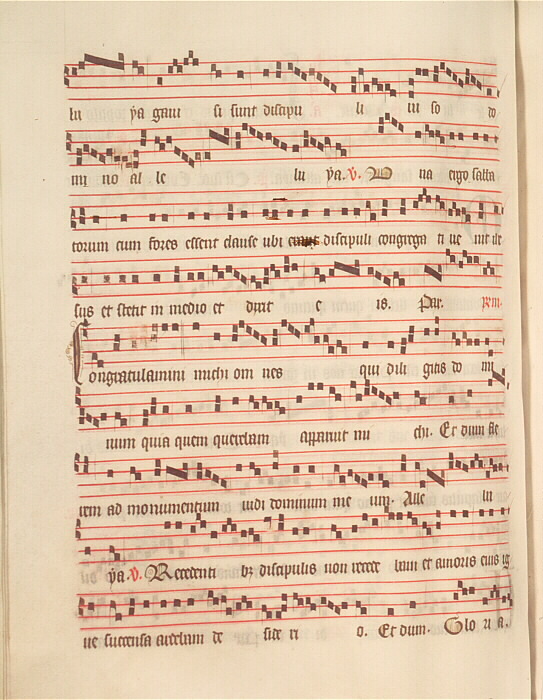 lu ya gaui si sunt discipu li ui so do
mi no al le lu ya. V. U na ergo sabba
torum cum fores essent clause ubi discipuli congrega ti ue nit ih
sus et stetit in medio et dixit e is. Par.
Congratulamini michi om nes qui dili gitis do mi
num quia quem querebam apparuit mi chi. Et dum fle
rem ad monumentum uidi dominum me um. Alle lu
ya. V. Recedenti bz discipulis non recede bam et amoris eius ig
ne succensa ardebam de side ri o. Et dum. Glo ri a.